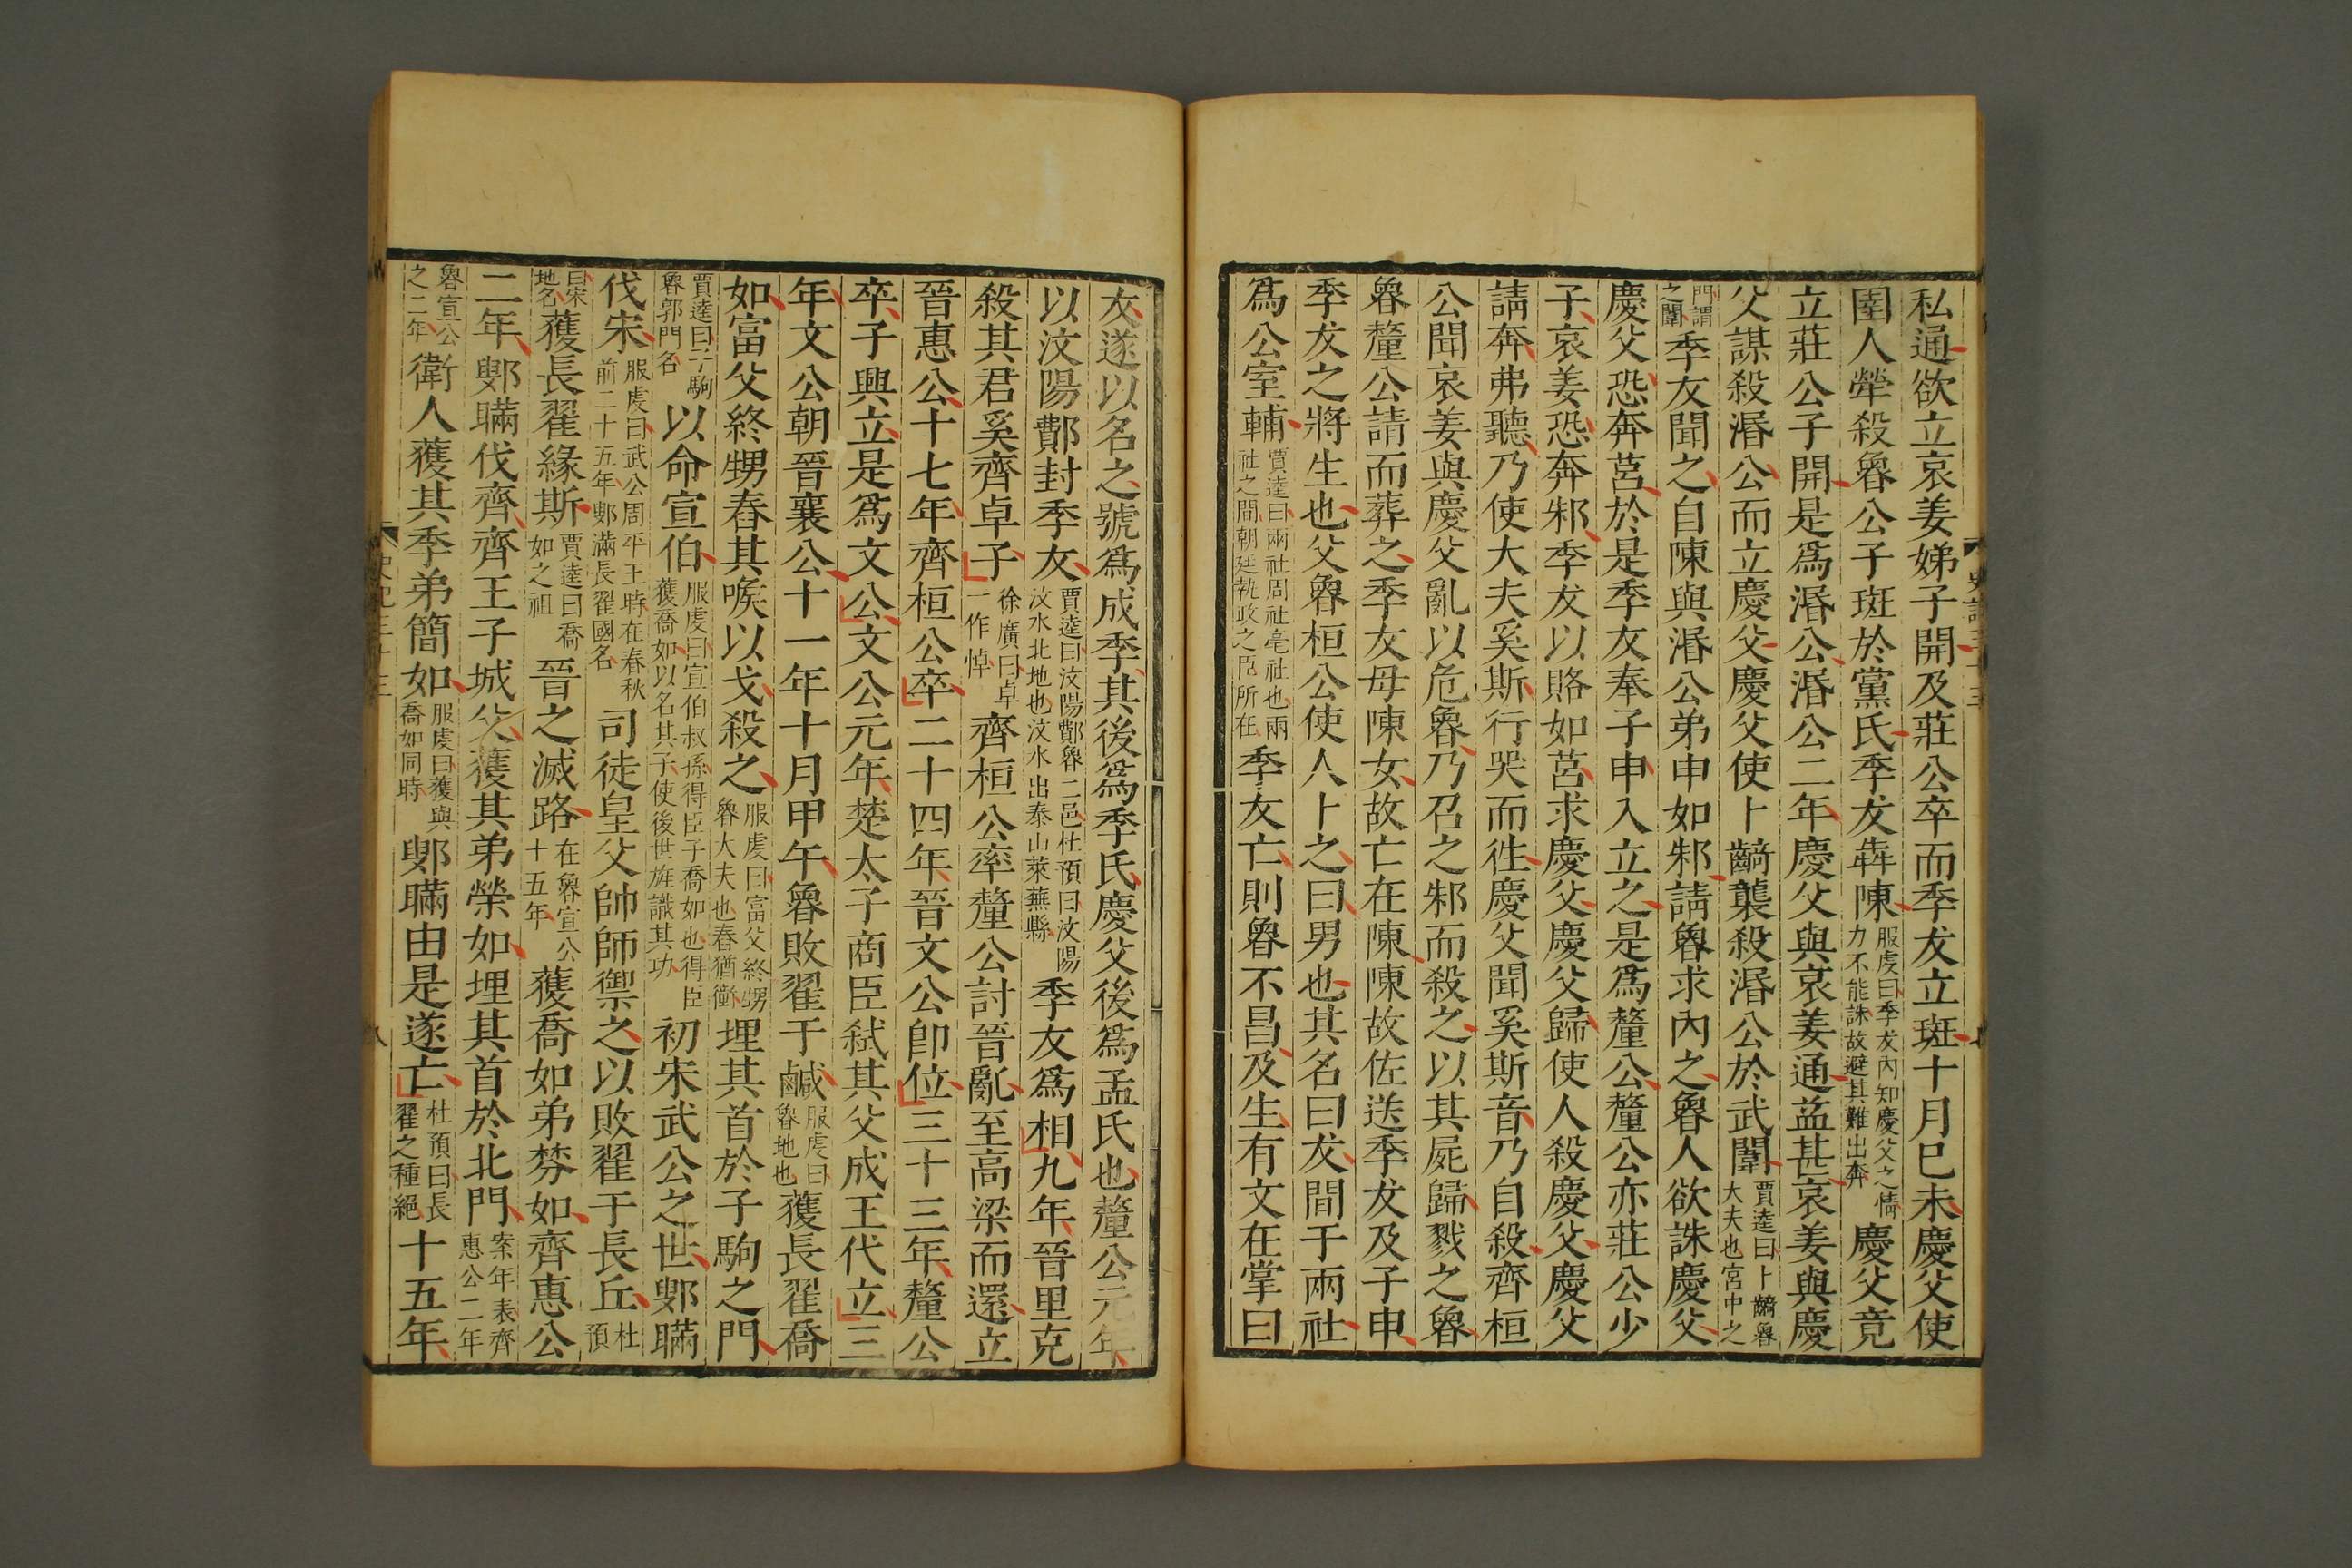 私通欲立哀姜娣子開及莊公卒而季友立斑十月巳未慶父使
圉人犖殺魯公子斑於黨氏季友犇陳服虔曰季友內知慶父之情力不能誅故避其難出奔慶父竟
立莊公子開是爲湣公湣公二年慶父與哀姜通益甚哀姜與慶
父謀殺湣公而立慶父慶父使卜齮襲殺湣公於武闈賈逵曰卜齮魯大夫也宮中之
門謂之闈季友聞之自陳與湣公弟申如邾請魯求內之魯人欲誅慶父
慶父恐奔莒於是季友奉子申入立之是爲釐公釐公亦莊公少
子哀姜恐奔邾季友以賂如莒求慶父慶父歸使人殺慶父慶父
請奔弗聽乃使大夫奚斯行哭而徃慶父聞奚斯音乃自殺齊桓
公聞哀姜與慶父亂以危魯乃召之邾而殺之以其屍歸戮之魯
魯釐公請而葬之季友母陳女故亡在陳陳故佐送季友及子申
季友之將生也父魯桓公使人卜之曰男也其名曰友間于兩社
爲公室輔賈逵曰兩社周社亳社也兩社之間朝廷執政之臣所在季友亡則魯不昌及生有文在掌曰
友遂以名之號爲成季其後爲季氏慶父後爲孟氏也釐公元年
以汶陽鄪封季友賈逵曰汶陽鄪魯二邑杜預曰汶陽汶水北地也汶水出泰山萊蕪縣季友爲相九年晉里克
殺其君奚齊卓子徐廣曰卓一作悼齊桓公率釐公討晉亂至高梁而還立
晉惠公十七年齊桓公卒二十四年晉文公卽位三十三年釐公
卒子興立是爲文公文公元年楚太子商臣弑其父成王代立三
年文公朝晉襄公十一年十月甲午魯敗翟于鹹服虔曰魯地也獲長翟喬
如富父終甥舂其喉以戈殺之服虔曰富父終甥魯大夫也舂猶衝埋其首於子駒之門
賈逵曰子駒魯郭門名以命宣伯服虔曰宣伯叔孫得臣子喬如也得臣獲喬如以名其子使後世旌識其功初宋武公之世鄋瞞
伐宋服虔曰武公周平王時在春秋前二十五年鄋滿長翟國名司徒皇父帥師禦之以敗翟于長丘杜預
曰宋地名獲長翟緣斯賈逵曰喬如之祖晉之滅路在魯宣公十五年獲喬如弟棼如齊惠公
二年鄋瞞伐齊齊王子城父獲其弟榮如埋其首於北門案年表齊惠公二年
魯宣公之二年衛人獲其季弟簡如服虔曰獲與喬如同時鄋瞞由是遂亡杜預曰長翟之種絕十五年